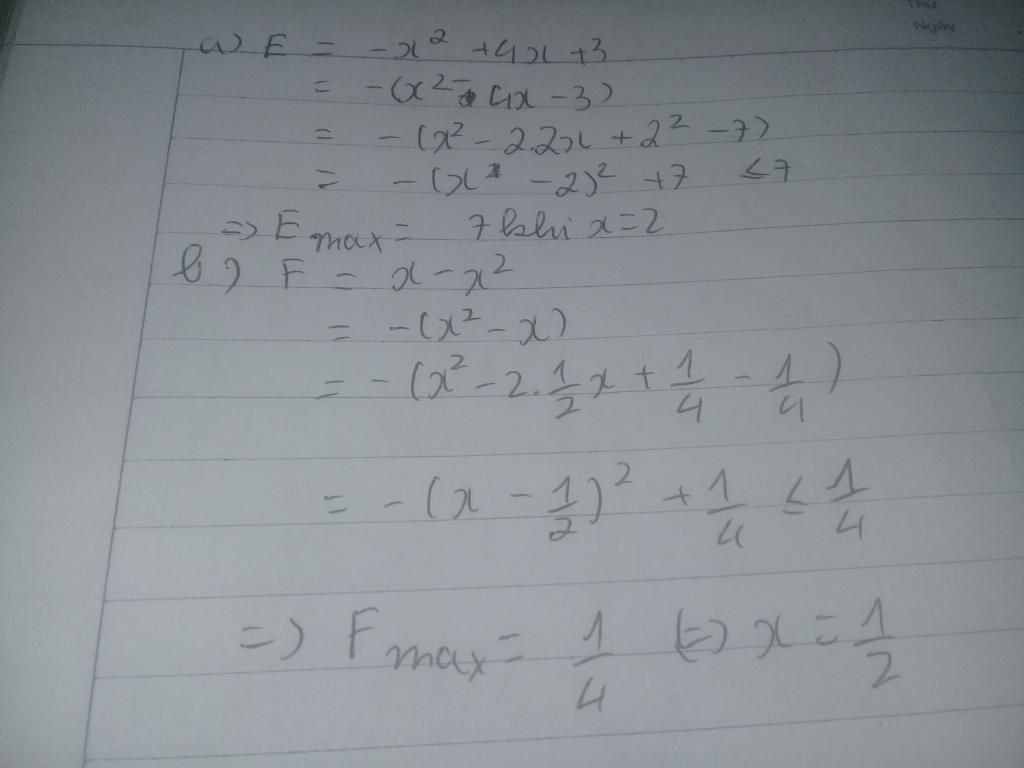 THỨ
NGÀY
a) E = -x² + 4x + 3
= -(x² - 4x - 3)
= -(x² - 2.2x + 2² - 7)
= -(x - 2)² + 7 ≤ 7
=> E max = 7 khi x = 2
b) F = x - x²
= -(x² - x)
= -(x² - 2.1/2x + 1/4 - 1/4)
= -(x - 1/2)² + 1/4 ≤ 1/4
=> F max = 1/4 (=) x = 1/2